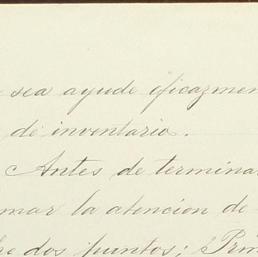 sea ayude eficazmen
de inventario.
Antes de termina
mar la atencion de
dos puntos; Prim